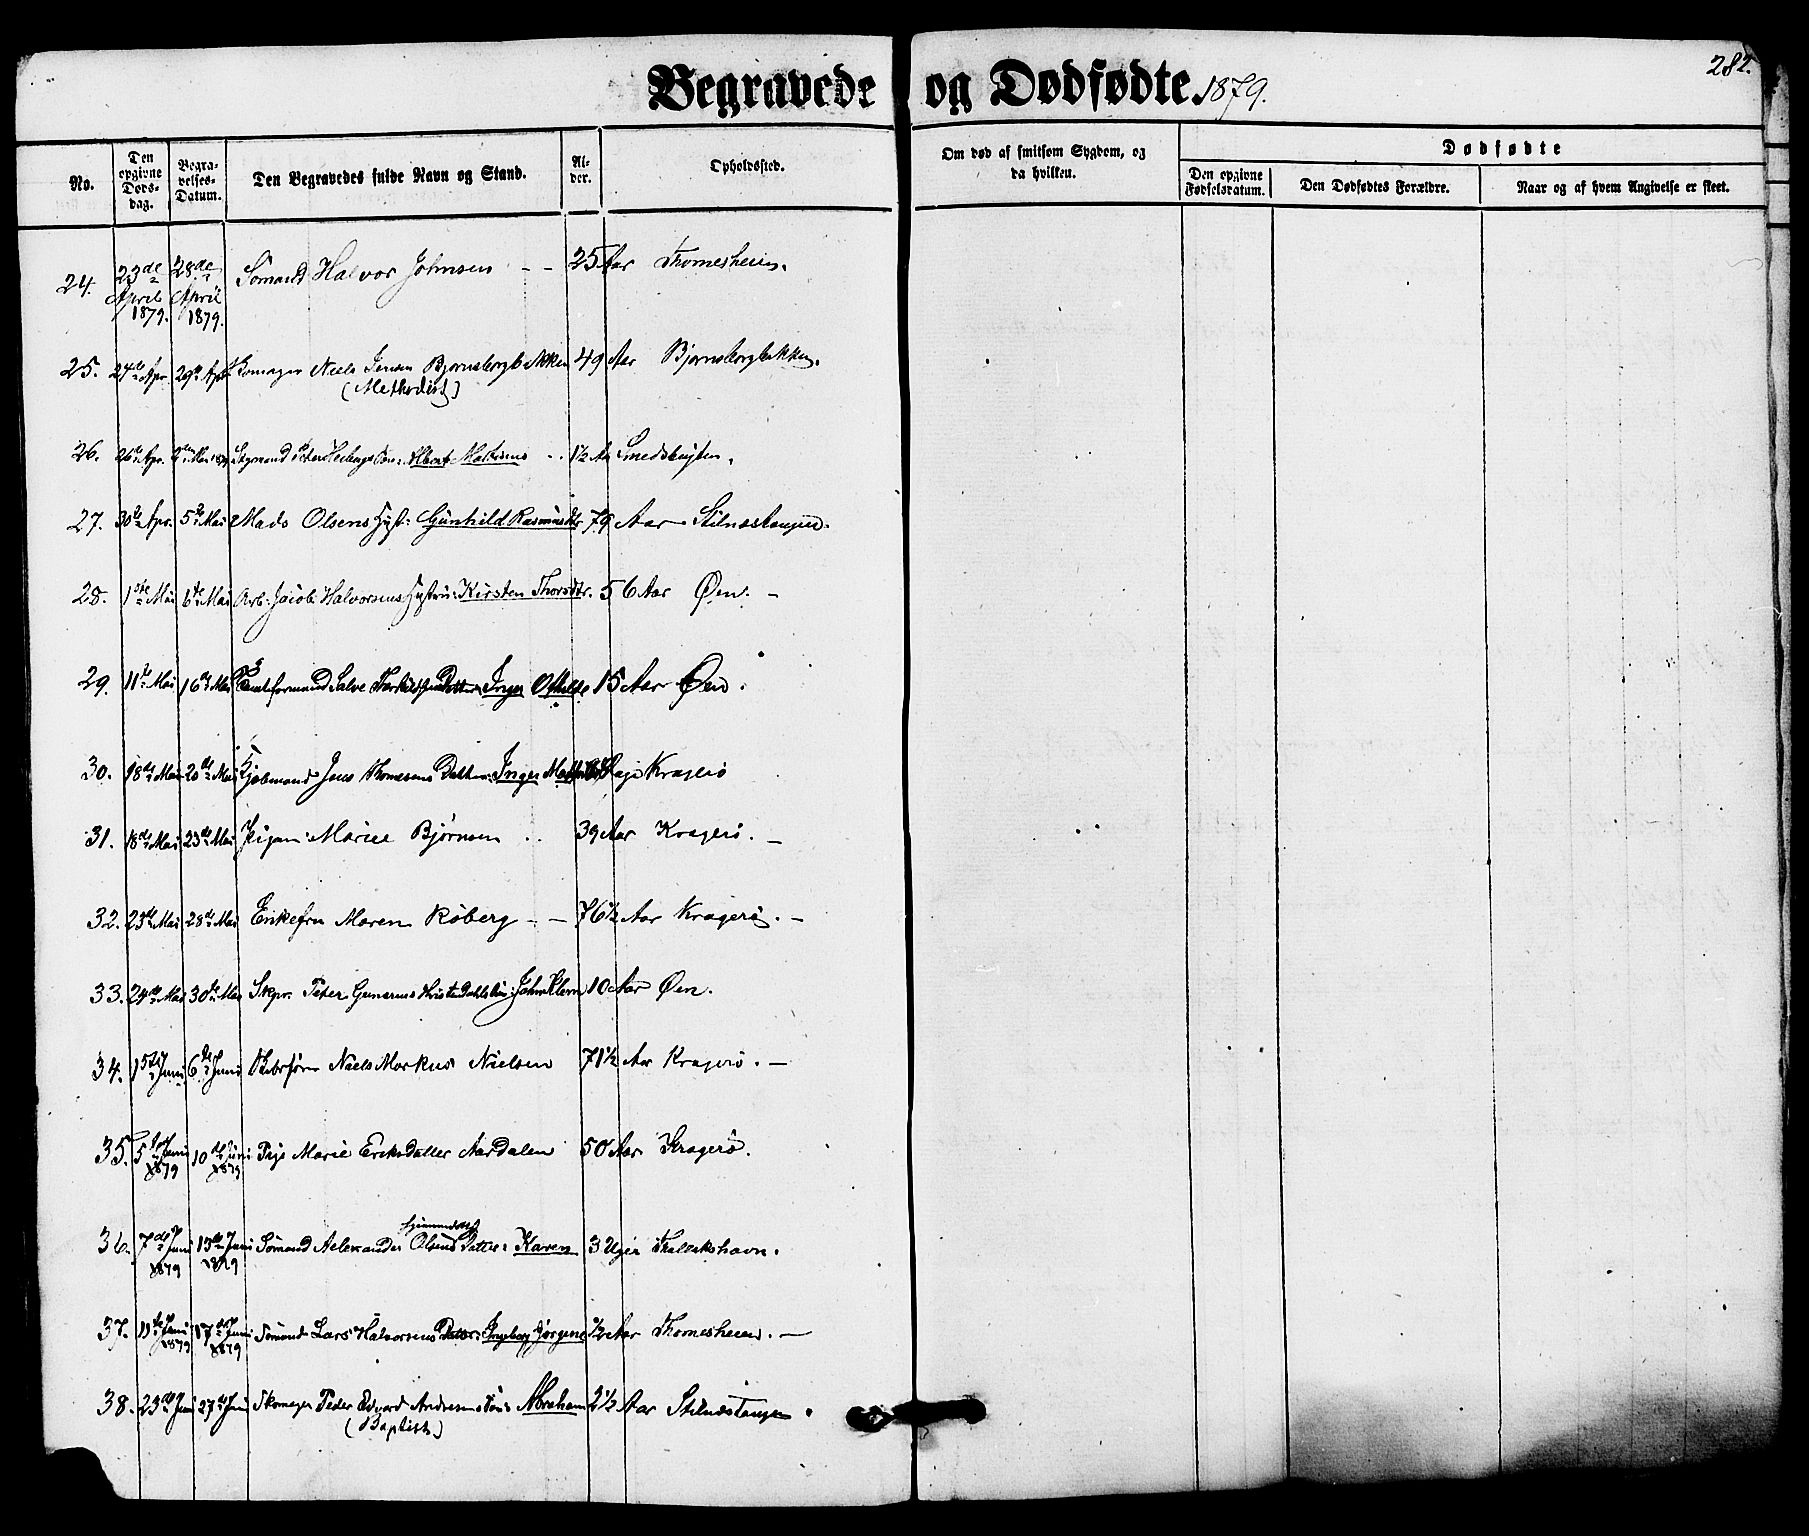 Begravede og Dødfødte. 1879.
282.
No.
Den opgivne Døds-dag.
Begra-velses-Datum.
Den Begravedes fulde Navn og Stand.
Al-der.
Opholdssted.
Om død af smitsom Sygdom, og da hvilken.
Dødfødte
Den opgivne Fødselsdatum.
Den Dødfødtes Forældre.
Naar og af hvem Angivelse er skeet.
24. 23de April 1879. 28de April 1879. Sømand Halvor Johnsen - - 25 Aar Thomesheien.
25. 24de Apr. 29de Apr. Niels Jensen Bjørnsborgbakken 49 Aar Bjørnsborgbakken.
(Methodist)
26. 26de Apr. Mai 1879 Søn: Albert 1½ Aar Smedsbugten.
27. 30te Apr. 5te Mai Mads Olsens Hust: Gunhild Rasmusdtr 79 Aar Stilnestangen.
28. 1ste Mai 6te Mai Arb: Jacob Halvorsens Hustru: Kirsten Thorsdtr. 56 Aar Øen. -
29. 11te Mai 16de Mai Salve Datter: Inger Othilde 15 Aar Øen.
30. 18de Mai 20de Mai Kjøbmand Jens Thomesens Datter: Inger Kragerø
31. 18de Mai 23de Mai Pigen: Marie Bjørnsen .. 39 Aar Kragerø. -
32. 23de Mai 28de Mai Enkefru Maren Röberg - - 76½ Aar Kragerø. -
33. 24de Mai 30te Mai Skpr. Peter Søn: John 10 Aar Øen.
34. 1ste Juni 6te Juni Niels Markus Nielsen 71½ Aar Kragerø. -
35. 5te Juni 1879 10de Juni 1879 Pige Marie Eriksdatter Aardalen 50 Aar Kragerø.
36. 7de Juni 1879 13de Juni 1879 Sømand Alexander Olsens Datter: Karen 3 Uger
37. 11te Juni 1879 17de Juni 1879 Sømand Lars Halvorsens Datter: Ingeborg Jørgine ½ Aar Thomesheien. -
38. 23de Juni 27de Juni Skomager Peder Edvard Andersens Søn: Abraham 2½ Aar Stilnestangen.
(Baptist)